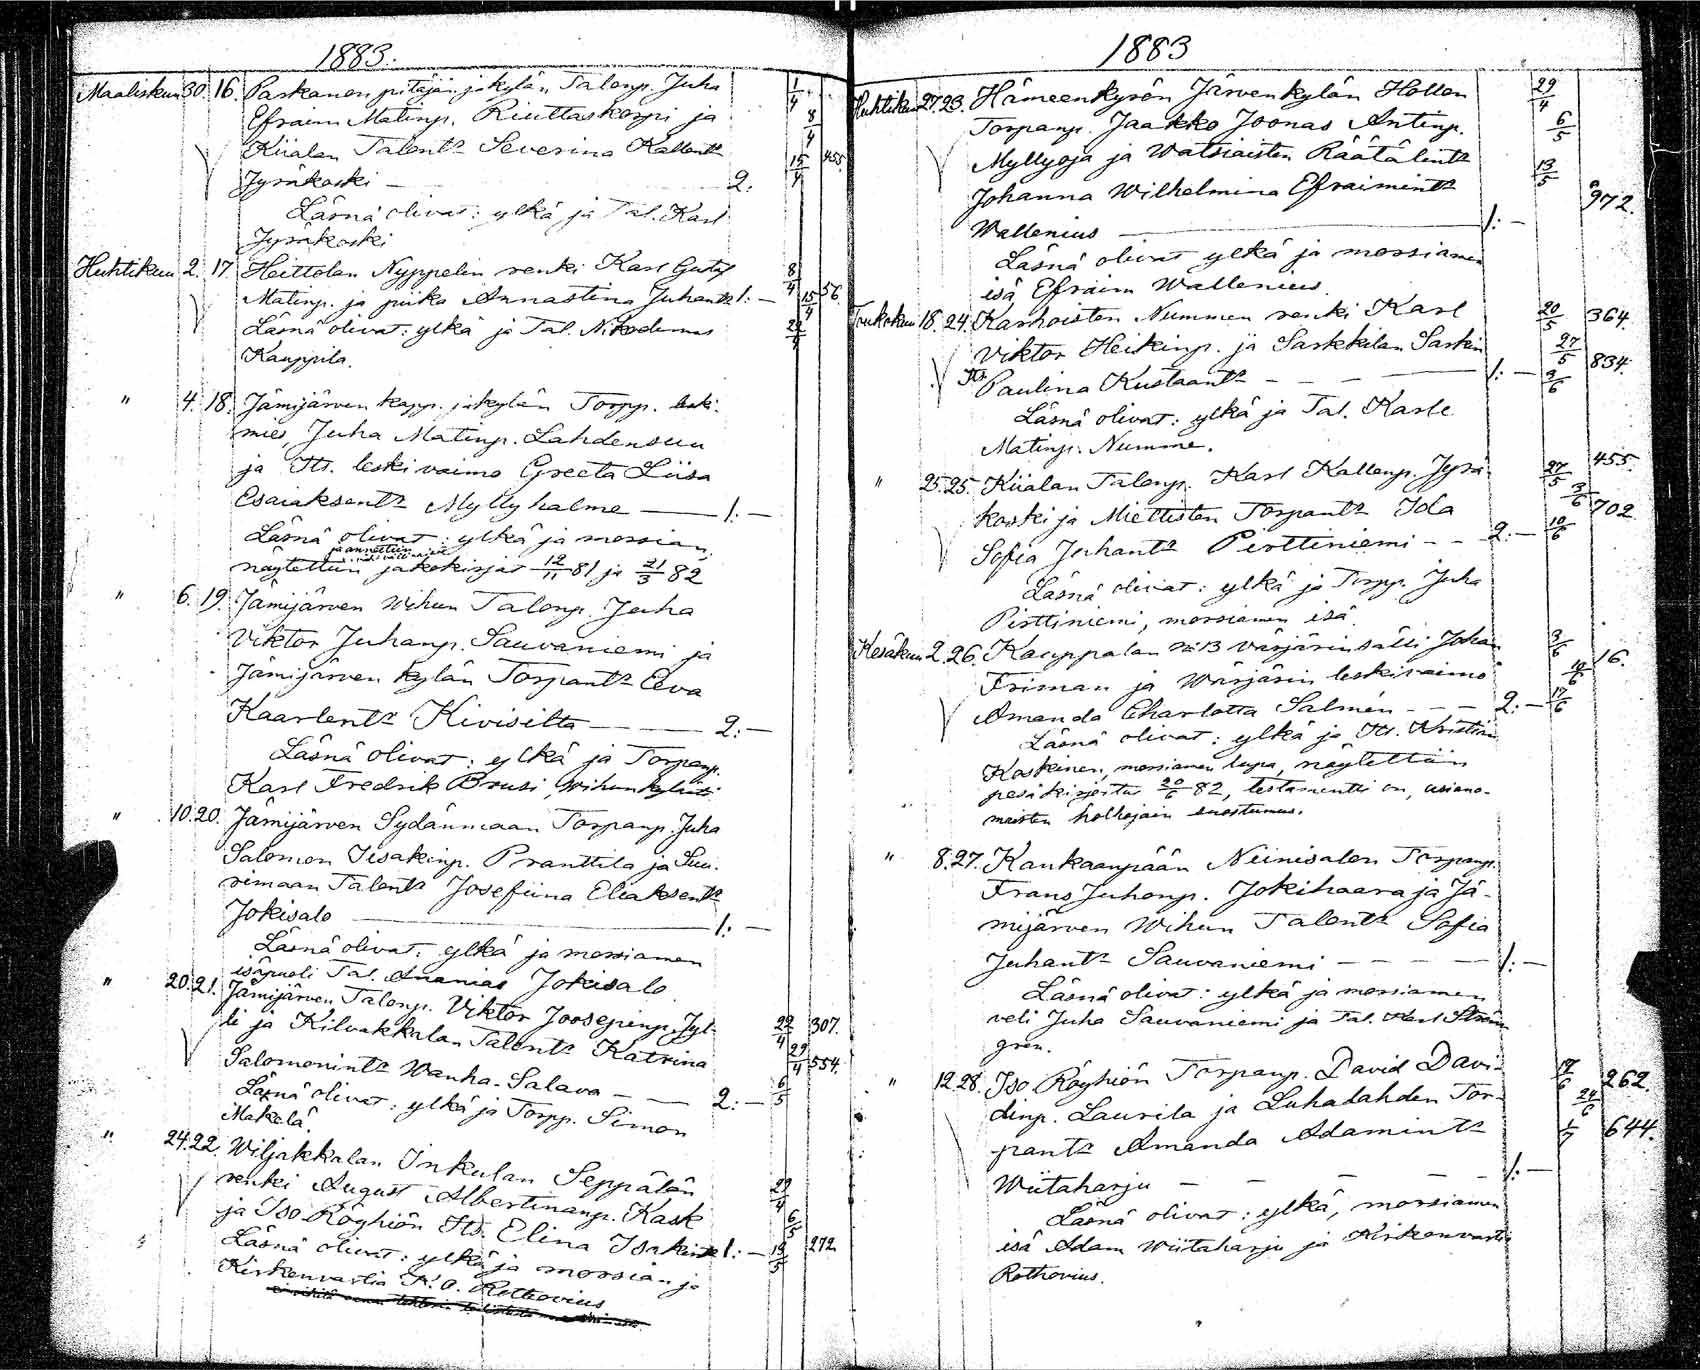 1883.
Maaliskuu 30. 16. Parkanon pitäjän jakylän Talonp. Juha 1/4
Efraim Matinp. Riuttaskorpi ja 8/4
Kiialan Talontr Severina Kallentr 15/4 455.
Jyräkoski — 2:
Läsnä olivat: ylkä ja Tal. Karl
Jyräkoski
Huhtikuu 2. 17. Heittolan Nyppelin renki Karl Gustaf 8/4
Matinp. ja piika Annastina Juhantr 1: — 15/4 56.
Läsnä olivat: ylkä ja Tal. Nikodemus 22/4
Kauppila.
" 4. 18. Jämijärven kapp. jakylän Torpp. leski-
mies, Juha Matinp. Lahdensuu
ja Its. leskivaimo Greeta Liisa
Esaiaksentr Myllyhalme — 1: —
Läsnä olivat: ylkä ja morsian,
ja annettiin
näytettiin jakokirjat 12/11 81 ja 21/3 82
" 6. 19. Jämijärven Wihun Talonp. Juha
Viktor Juhanp. Sauvaniemi ja
Jämijärven kylän Torpantr Eeva
Kaarlentr Kivisilta — 2: —
Läsnä olivat: ylkä ja Torpanp.
Karl Fredrik Brusi, Wihun kylästä
" 10. 20. Jämijärven Sydänmaan Torpanp. Juha
Salomon Iisakinp. Pranttila ja Suu-
rimaan Talontr Josefiina Eliaksentr
Jokisalo — 1: —
Läsnä olivat: ylkä ja morsiamen
isäpuoli Tal. Ananias Jokisalo.
" 20. 21. Jämijärven Talonp. Viktor Joosepinp. Jyl-
li ja Kilvakkalan Talontr Katrina 22/4 307.
Salomonintr Wanha-Salava — 2: — 29/4 554.
Läsnä olivat: ylkä ja Torpp. Simon 6/5
Mäkelä.
" 24. 22. Wiljakkalan Inkulan Seppälän
renki August Albertinanp. Kask 29/4
ja Iso Röyhiön Its. Elina Isakintr 1: — 6/5
Läsnä olivat: ylkä ja morsian ja 13/5 272
Kirkonvartia K. O. Rothovius
1883
Huhtikuu 27. 23. Hämeenkyrön Järvenkylän Hollon 29/4
Torpanp. Jaakko Joonas Antinp. 6/5
Myllyoja ja Watsiaisten Räätälintr 13/5
Johanna Wilhelmina Efraimintr 972.
Wallenius — 1: —
Läsnä olivat ylkä ja morsiamen
isä Efraim Wallenius.
Toukokuu 18. 24. Karhoisten Nummen renki Karl 20/5 364.
Viktor Heikinp. ja Sarkkilan Sarkin 27/5 834.
Its. Paulina Kustaantr — 1: — 3/6
Läsnä olivat: ylkä ja Tal. Karle
Matinp. Numme.
" 25. 25. Kiialan Talonp. Karl Kallenp. Jyrä- 27/5 455.
koski ja Miettisten Torpantr Ida 3/6 702.
Sofia Juhantr Perttiniemi - - 2: — 10/6
Läsnä olivat: ylkä ja Torpp. Juha
Pirttiniemi, morsiamen isä.
Kesäkuu 2. 26. Kauppalan No 13 värjärinsälli Johan 3/6
Friman ja Wärjärin leskivaimo 10/6 16.
Amanda Charlotta Salmén - - - 2: — 17/6
Läsnä olivat: ylkä ja Its. Kristian
Koskinen, morsiamen lupa, näytettiin
pesäkirjoitus 20/6 82, testamentti on, asiano-
maisten holhojain suostumus.
" 8. 27. Kankaanpään Niinisalon Torpanp.
Frans Juhonp. Jokihaara ja Jä-
mijärven Wihun Talontr Sofia
Juhantr Sauvaniemi - - - - 1: —
Läsnä olivat: ylkä ja morsiamen
veli Juha Sauvaniemi ja Tal. Karl Ström-
gren.
" 12. 28. Iso Röyhiön Torpanp. David Davi- 17/6 262.
dinp. Laurila ja Luhalahden Tor- 24/6
pantr Amanda Adamintr 1/7 644.
Wiitaharju - - - - 1: —
Läsnä olivat: ylkä, morsiamen
isä Adam Wiitaharju ja Kirkonvartia
Rothovius.